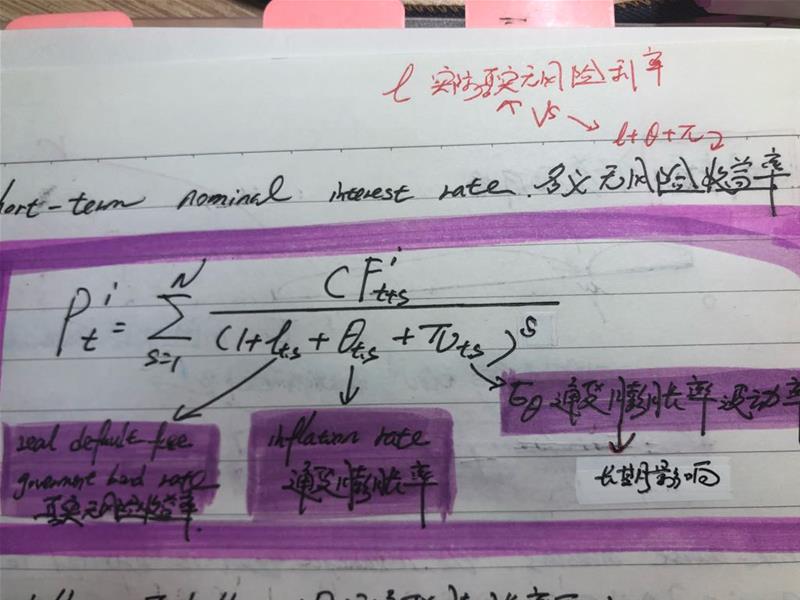 l 实际真实无风险利率
vs
l+θ+π
hort-term nominal interest rate. 名义无风险收益率
P_t^i = \sum_{s=1}^{N} \frac{CF_{t+s}^i}{(1+l_{t,s}+θ_{t,s}+π_{t,s})^s}
real default free
government bond rate
真实无风险收益率.
inflation rate
通货膨胀率
σ_θ 通货膨胀率波动率
长期影响